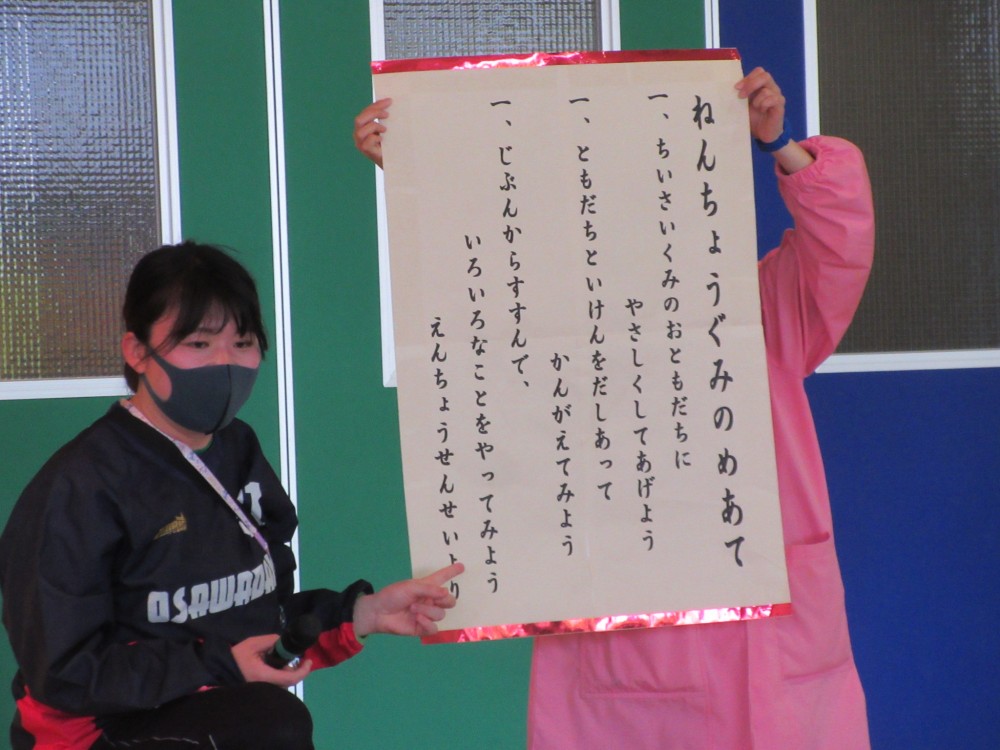 ねんちょうぐみのめあて
一、ちいさいくみのおともだちに
やさしくしてあげよう
一、ともだちといけんをだしあって
かんがえてみよう
一、じぶんからすすんで、
いろいろなことをやってみよう
えんちょうせんせいより